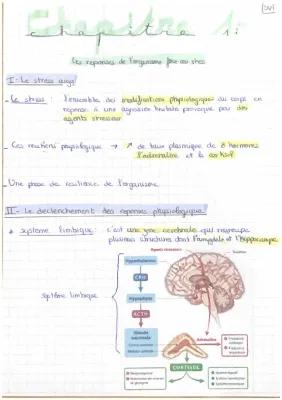 SVT
Chapitre 1:
Les réponses de l'organisme face au stress
I - Le stress aigu
- Le stress : l'ensemble des modifications physiologiques du corps en
réponse à une agression brutale provoquée par des
agents stresseur
- Ces réactions physiologique → ↗ de taux plasmique de 2 hormones
l'adrénaline et le cortisol
- Une phase de résilience de l'organisme.
II - Le déclenchement des réponses physiologiques
système limbique : c'est une zone cérébrale qui regroupe
plusieurs structures dont l'amygdale et l'hippocampe
Agents stresseurs
Hypothalamus
CRH
système limbique
Hypophyse
ACTH
Adrénaline
CORTISOL